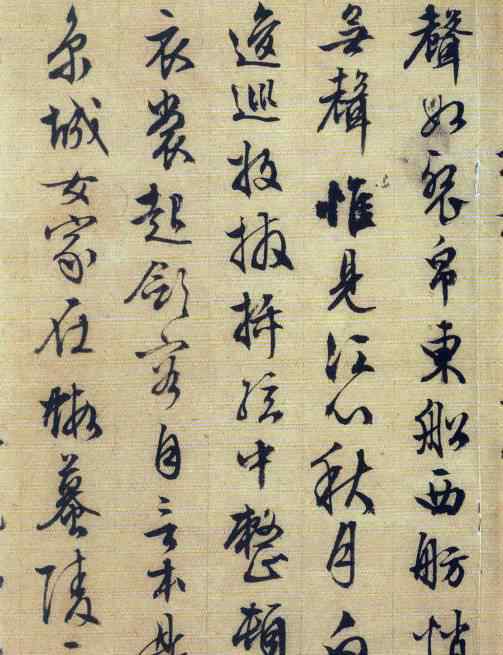 聲如裂帛東船西舫悄
無聲惟見江心秋月白
逡巡收撥插絃中整頓
衣裳起斂容自言本是
京城女家在蝦蟇陵